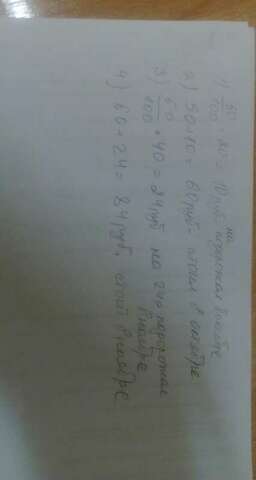 1) 50/100 · 20 = 10 руб на подорожал
2) 50+10 = 60 руб - стоил в октябре
3) 60/100 · 40 = 24 руб на 24р подорожал
в ноябре
4) 60+24 = 84 руб. стоил в ноябре